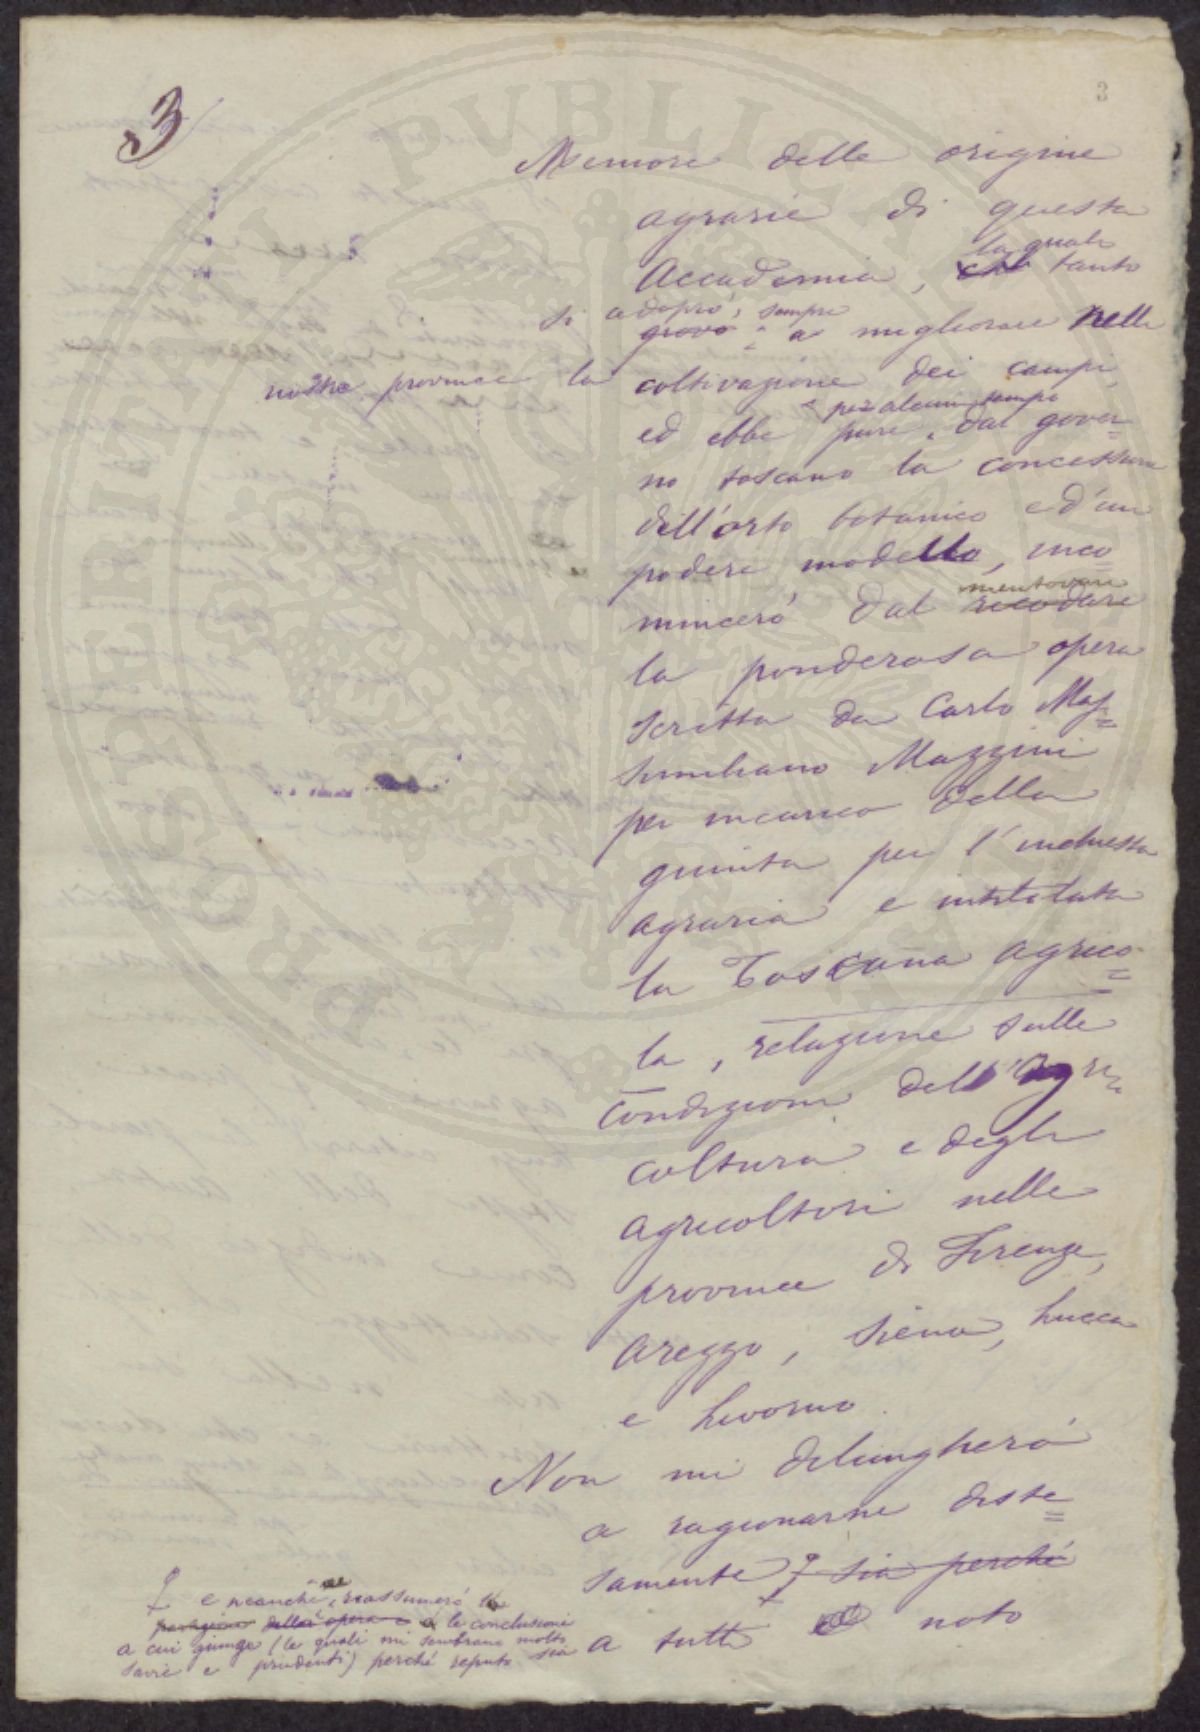 3
3
Memore delle origine
agrarie di questa
la quale
Accademia, che tanto
si adoprò, sempre
giovò a migliorare nelle
nostre province la coltivazione dei campi,
per alcun tempo
ed ebbe pure dal gover=
no toscano la concessione
dell'orto botanico e d'un
podere modello, inco=
mentovare
mincerò dal ricordare
la ponderosa opera
scritta da Carlo Mas=
similiano Mazzini
per incarico della
giunta per l'inchiesta
agraria e intitolata
la Toscana agrico=
la, relazione sulle
condizioni dell'agri=
coltura e degli
agricoltori nelle
province di Firenze,
Arezzo, Siena, Lucca
e Livorno.
Non mi dilungherò
a ragionarne diste=
samente, sia perché
e neanche ne riassumerò le
partizioni dell'opera e le conclusioni
a cui giunge (le quali mi sembrano molto
savie e prudenti) perché reputo sia
a tutti noto
PERITI PVBLICAE PROSPERITATI